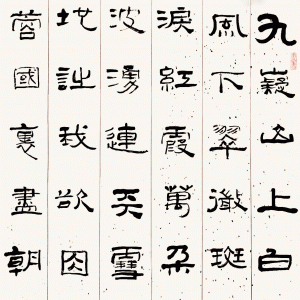 九嶷山上白
風下翠微斑
淚紅霞萬朵
波湧連天雪
地詩我欲因
蓉國裏盡朝